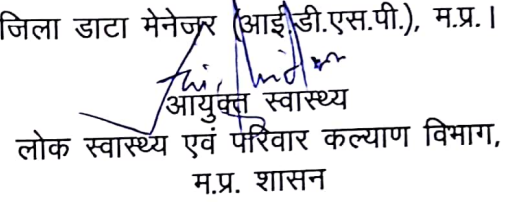 जिला डाटा मेनेजर (आई.डी.एस.पी.), म.प्र.।
आयुक्त स्वास्थ्य
लोक स्वास्थ्य एवं परिवार कल्याण विभाग,
म.प्र. शासन